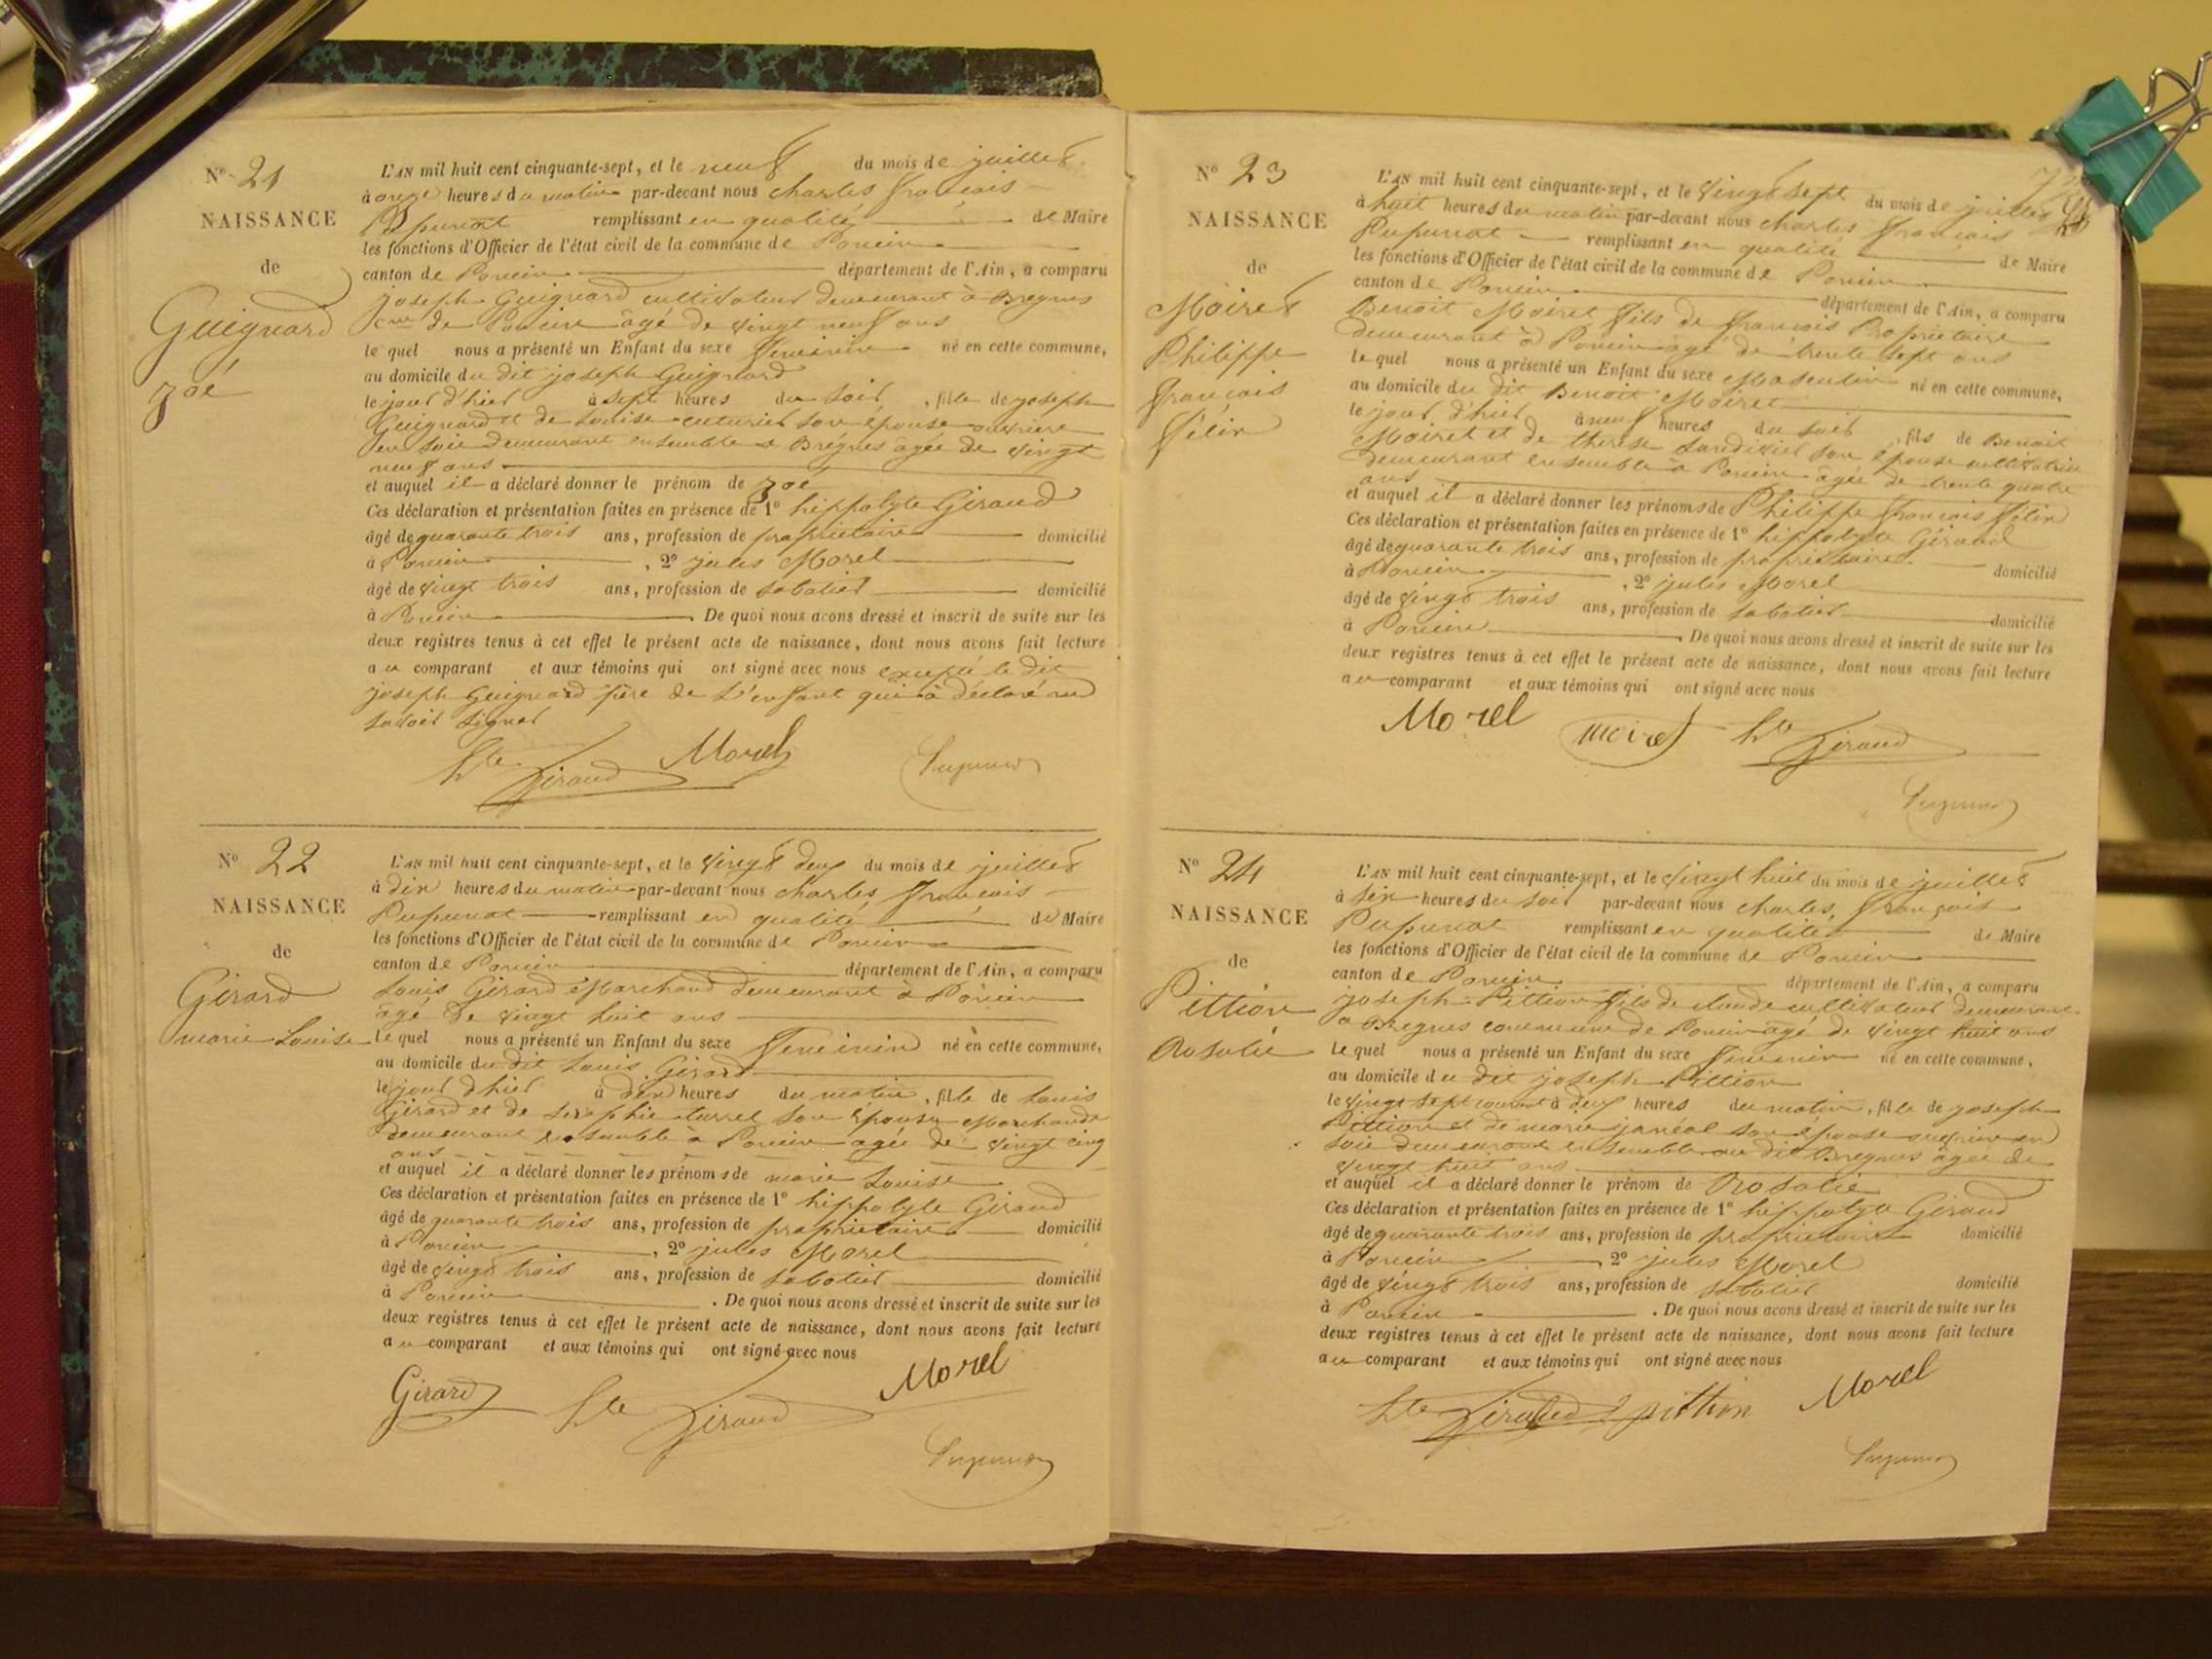 N° 21
NAISSANCE
de
Guignard
Zoé
L'AN mil huit cent cinquante-sept, et le neuf du mois de juillet
à onze heures du matin par-devant nous charles françois
Pupunat remplissant en qualité de Maire
les fonctions d'Officier de l'état civil de la commune de Poncin
canton de Poncin département de l'Ain, a comparu
joseph Guignard cultivateur demeurant à Bregnes
cne de Poncin âgé de vingt neuf ans
le quel nous a présenté un Enfant du sexe féminin né en cette commune,
au domicile du dit joseph Guignard
le jour d'hier à sept heures du soir, fille de joseph
Guignard et de Louise son épouse ouvrière
en soie demeurant ensemble à Brégnes âgée de vingt
neuf ans
et auquel il a déclaré donner le prénom de Zoé
Ces déclaration et présentation faites en présence de 1° hippolyte Giraud
âgé de quarante trois ans, profession de propriétaire domicilié
à Poncin, 2° jules Morel
âgé de vingt trois ans, profession de sabotier domicilié
à Poncin. De quoi nous avons dressé et inscrit de suite sur les
deux registres tenus à cet effet le présent acte de naissance, dont nous avons fait lecture
au comparant et aux témoins qui ont signé avec nous excepté le dit
joseph Guignard père de l'enfant qui a déclaré ne
savoir signer
Hte Giraud Morel Pupunat
N° 22
NAISSANCE
de
Girard
marie Louise
L'AN mil huit cent cinquante-sept, et le vingt deux du mois de juillet
à dix heures du matin par-devant nous charles françois
Pupunat remplissant en qualité de Maire
les fonctions d'Officier de l'état civil de la commune de Poncin
canton de Poncin département de l'Ain, a comparu
Louis Girard Marchand demeurant à Poncin
âgé de vingt huit ans
le quel nous a présenté un Enfant du sexe féminin né en cette commune,
au domicile du dit Louis Girard
le jour d'hier à dix heures du matin, fille de Louis
Girard et de Séraphie turrel son épouse Marchande
demeurant ensemble à Poncin agée de vingt cinq
ans
et auquel il a déclaré donner les prénoms de marie Louise
Ces déclaration et présentation faites en présence de 1° hippolyte Giraud
âgé de quarante trois ans, profession de propriétaire domicilié
à Poncin, 2° jules Morel
âgé de vingt trois ans, profession de sabotier domicilié
à Poncin. De quoi nous avons dressé et inscrit de suite sur les
deux registres tenus à cet effet le présent acte de naissance, dont nous avons fait lecture
au comparant et aux témoins qui ont signé avec nous
Girard Hte Giraud Morel
Pupunat
N° 23
NAISSANCE
de
Moiret
Philippe
françois
félix
L'AN mil huit cent cinquante-sept, et le vingt sept du mois de juillet
à huit heures du matin par-devant nous charles françois
Pupunat remplissant en qualité de Maire
les fonctions d'Officier de l'état civil de la commune de Poncin
canton de Poncin département de l'Ain, a comparu
Benoit Moiret fils de françois Propriétaire
demeurant à Poncin âgé de trente sept ans
le quel nous a présenté un Enfant du sexe Masculin né en cette commune,
au domicile du dit Benoit Moiret
le jour d'hier à neuf heures du soir, fils de Benoit
Moiret et de thérèse son épouse cultivatrice
demeurant ensemble à Poncin âgée de trente quatre
ans
et auquel il a déclaré donner les prénoms de Philippe françois félix
Ces déclaration et présentation faites en présence de 1° hippolyte Giraud
âgé de quarante trois ans, profession de propriétaire domicilié
à Poncin, 2° jules Morel
âgé de vingt trois ans, profession de sabotier domicilié
à Poncin. De quoi nous avons dressé et inscrit de suite sur les
deux registres tenus à cet effet le présent acte de naissance, dont nous avons fait lecture
au comparant et aux témoins qui ont signé avec nous
Morel moiret Hte Giraud
Pupunat
N° 24
NAISSANCE
de
Pittion
Rosalie
L'AN mil huit cent cinquante-sept, et le vingt huit du mois de juillet
à six heures du soir par-devant nous charles françois
Pupunat remplissant en qualité de Maire
les fonctions d'Officier de l'état civil de la commune de Poncin
canton de Poncin département de l'Ain, a comparu
joseph Pittion fils de claude cultivateur demeurant
à Bregnes commune de Poncin âgé de vingt huit ans
le quel nous a présenté un Enfant du sexe féminin né en cette commune,
au domicile du dit joseph Pittion
le vingt sept courant à deux heures du matin, fille de joseph
Pittion et de marie son épouse ouvrière en
soie demeurant ensemble au dit Bregnes âgée de
vingt huit ans
et auquel il a déclaré donner le prénom de Rosalie
Ces déclaration et présentation faites en présence de 1° hippolyte Giraud
âgé de quarante trois ans, profession de propriétaire domicilié
à Poncin, 2° jules Morel
âgé de vingt trois ans, profession de sabotier domicilié
à Poncin. De quoi nous avons dressé et inscrit de suite sur les
deux registres tenus à cet effet le présent acte de naissance, dont nous avons fait lecture
au comparant et aux témoins qui ont signé avec nous
Hte Giraud pittion Morel
Pupunat